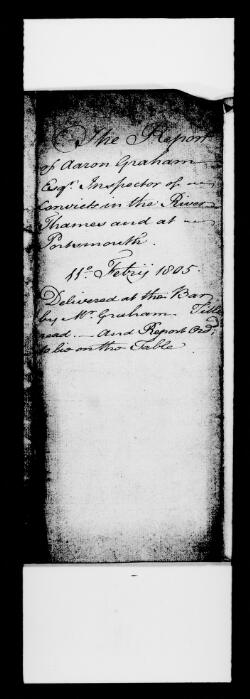 The Report
of Aaron Graham
Esqr. Inspector of
Convicts in the River
Thames and at
Portsmouth.
11o. Febry 1805.
Delivered at the Bar
by Mr. Graham. Title
read and Report Ord.
to lie on the Table